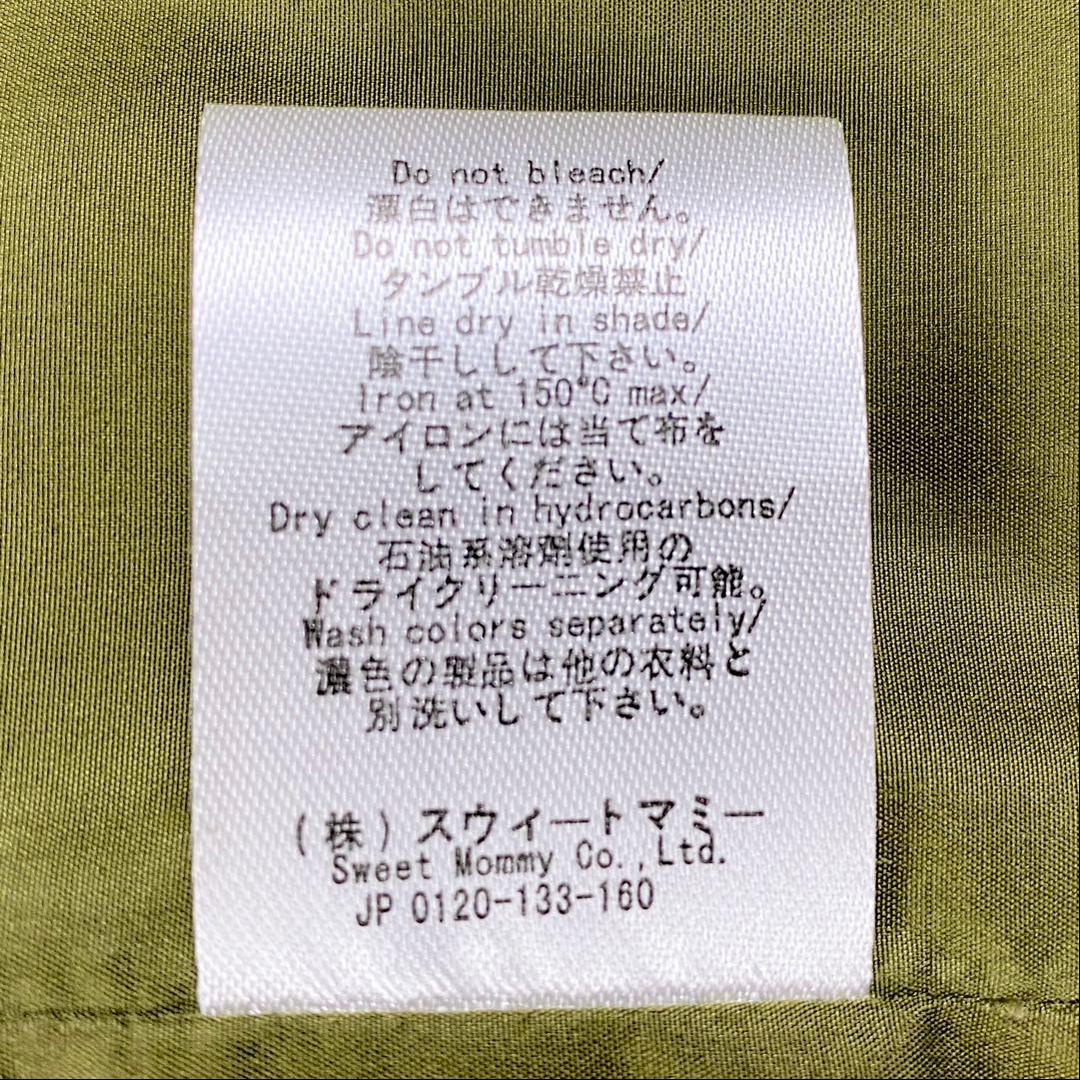 Do not bleach/
漂白はできません。
Do not tumble dry/
タンブル乾燥禁止
Line dry in shade/
陰干しして下さい。
Iron at 150°C max/
アイロンには当て布を
してください。
Dry clean in hydrocarbons/
石油系溶剤使用の
ドライクリーニング可能。
Wash colors separately/
濃色の製品は他の衣料と
別洗いして下さい。
(株)スウィートマミー
Sweet Mommy Co.,Ltd.
JP 0120-133-160